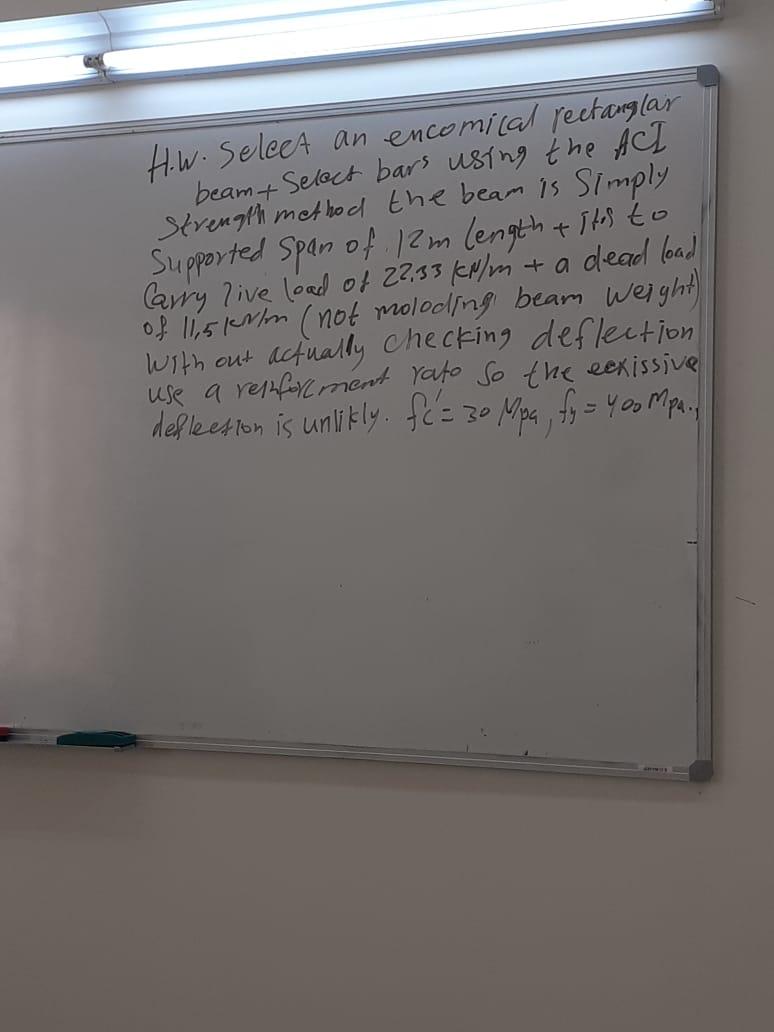 H.W. Select an encomical rectanglar
beam + Select bars using the ACI
Strength method the beam is Simply
Supported Span of 12m length + its to
Carry live load of 22,33 kN/m + a dead load
of 11,5 kN/m (not moloding beam weight)
With out actually checking deflection
use a reinforcment rato so the eexissive
deflection is unlikly. fc' = 30 Mpa, fy = 400 Mpa.